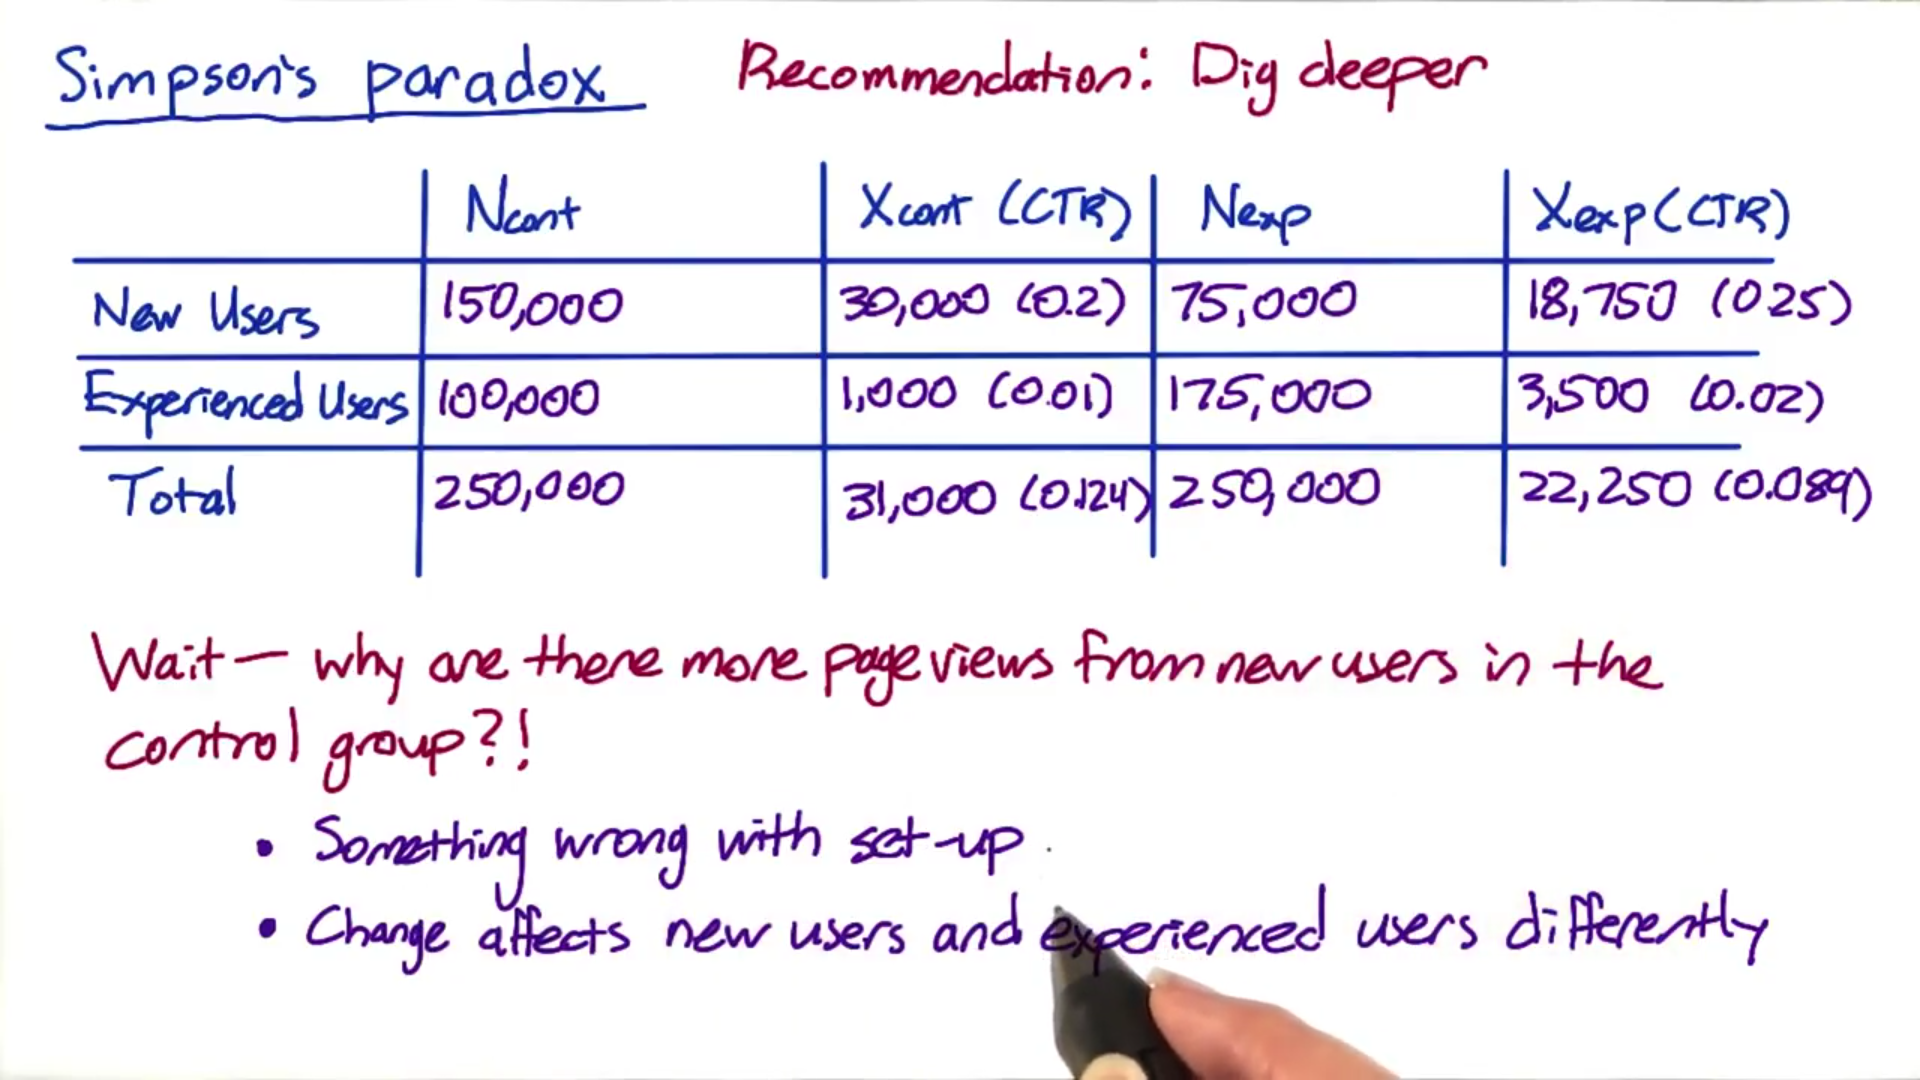 Simpson's paradox
Recommendation: Dig deeper
Ncont Xcont (CTR) Nexp Xexp (CTR)
New Users 150,000 30,000 (0.2) 75,000 18,750 (0.25)
Experienced Users 100,000 1,000 (0.01) 175,000 3,500 (0.02)
Total 250,000 31,000 (0.124) 250,000 22,250 (0.089)
Wait — why are there more pageviews from new users in the
control group?!
• Something wrong with set-up
• Change affects new users and experienced users differently